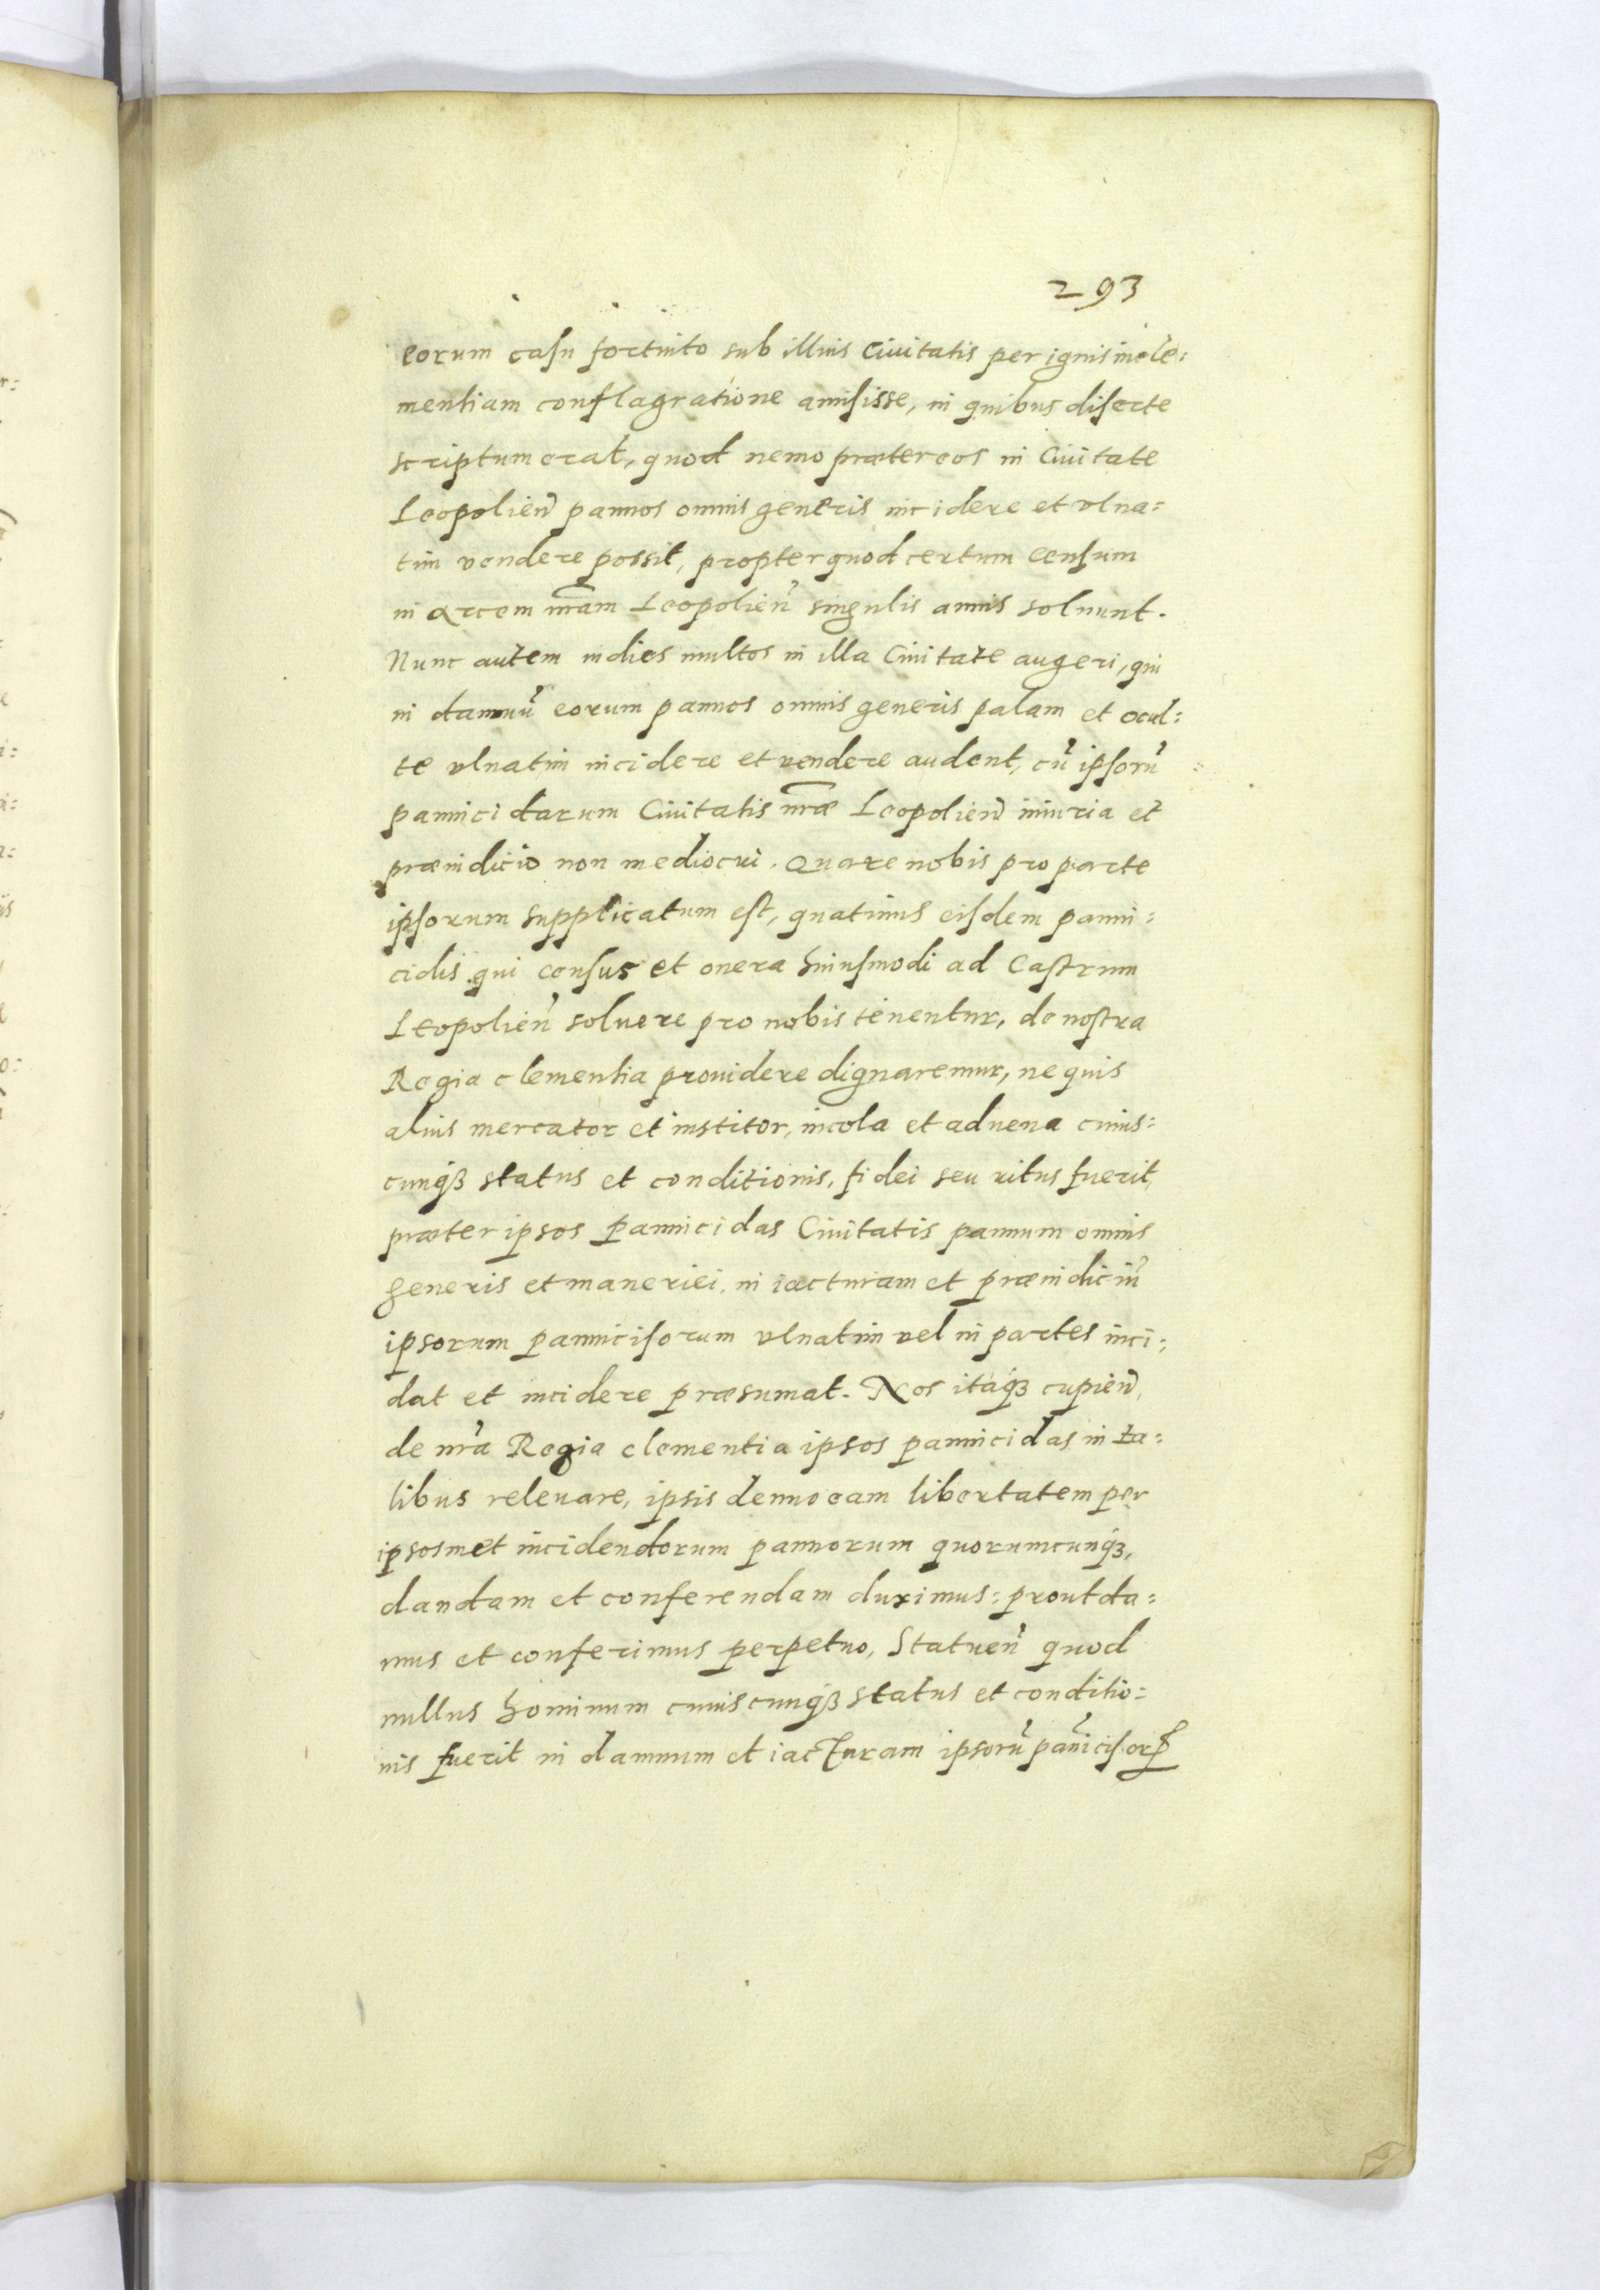 293
eorum casu fortuito sub illius Ciuitatis per ignis incle:
mentiam conflagratione amisisse, in quibus diserte
scriptum erat, quod nemo præter eos in Ciuitate
Leopolien̄ pannos omnis generis incidere et vlna:
tim vendere possit, propter quod certum censum
in arcem nr̄am Leopolien̄ singulis annis soluunt.
Nunc autem indies multos in illa Ciuitate augeri, qui
in damnū eorum pannos omnis generis palam et ocul:
te vlnatim incidere et vendere audent, cū ipsorū
pannicidarum Ciuitatis nr̄æ Leopolien̄ iniuria et
præiudicio non mediocri. Quare nobis pro parte
ipsorum supplicatum est, quatinus eisdem panni:
cidis qui census et onera huiusmodi ad Castrum
Leopolien̄ soluere pro nobis tenentur, de nostra
Regia clementia prouidere dignaremur, ne quis
alius mercator et institor, incola et aduena cuius:
cunqȝ status et conditionis, fidei seu ritus fuerit,
præter ipsos pannicidas Ciuitatis pannum omnis
generis et maneriei, in iacturam et præiudiciū
ipsorum pannicisorum vlnatim vel in partes inci:
dat et incidere præsumat. Nos itaqȝ cupien̄,
de nr̄a Regia clementia ipsos pannicidas in ta:
libus releuare, ipsis denuo eam libertatem per
ipsosmet incidendorum pannorum quorumcunqȝ,
dandam et conferendam duximus: prout da:
mus et conferimus perpetuo, Statuen̄ quod
nullus hominum cuiuscunqȝ status et conditio:
nis fuerit in damnum et iacturam ipsorū pan̄icisorꝝ